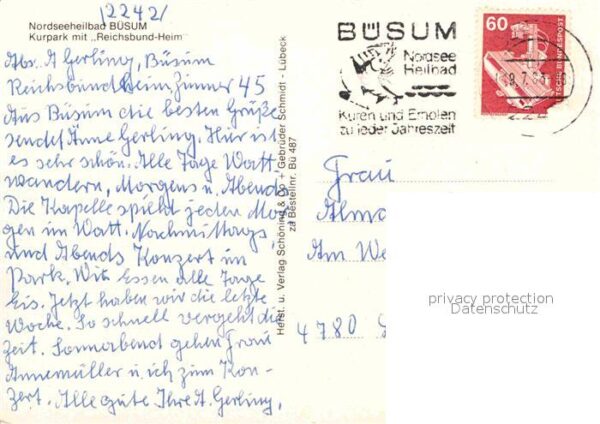 12242/
Nordseeheilbad BÜSUM
Kurpark mit „Reichsbund-Heim"
Abs. A Gerling, Büsum
Reichsbundheim Zimmer 45
Aus Büsum die besten Grüße
sendet Anne Gerling. Hier ist
es sehr schön. Alle Tage Watt
wandern, Morgens u. Abends
Die Kapelle spielt jeden Mor
gen im Watt. Nachmittags
und Abends Konzert im
Park. Wir Essen alle Tage
Eis. Jetzt haben wir die letzte
Woche. So schnell vergeht die
Zeit. Sonnabend gehen Frau
Annemüller u ich zum Kon-
zert. Alle gute Ihre A. Gerling.
Herst. u. Verlag Schöning & Co + Gebrüder Schmidt - Lübeck
zu Bestellnr. Bü 487
BÜSUM
Nordsee
Heilbad
Kuren und Erholen
zu jeder Jahreszeit
60
DEUTSCHE BUNDESPOST
Frau
Alma
Am We
4780
privacy protection
Datenschutz